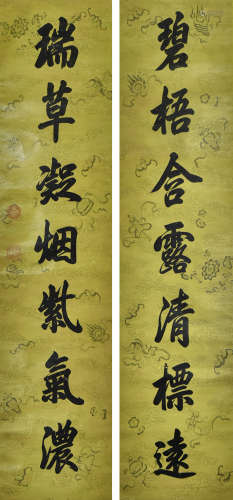 碧梧含露清標遠
瑞草凝烟紫氣濃